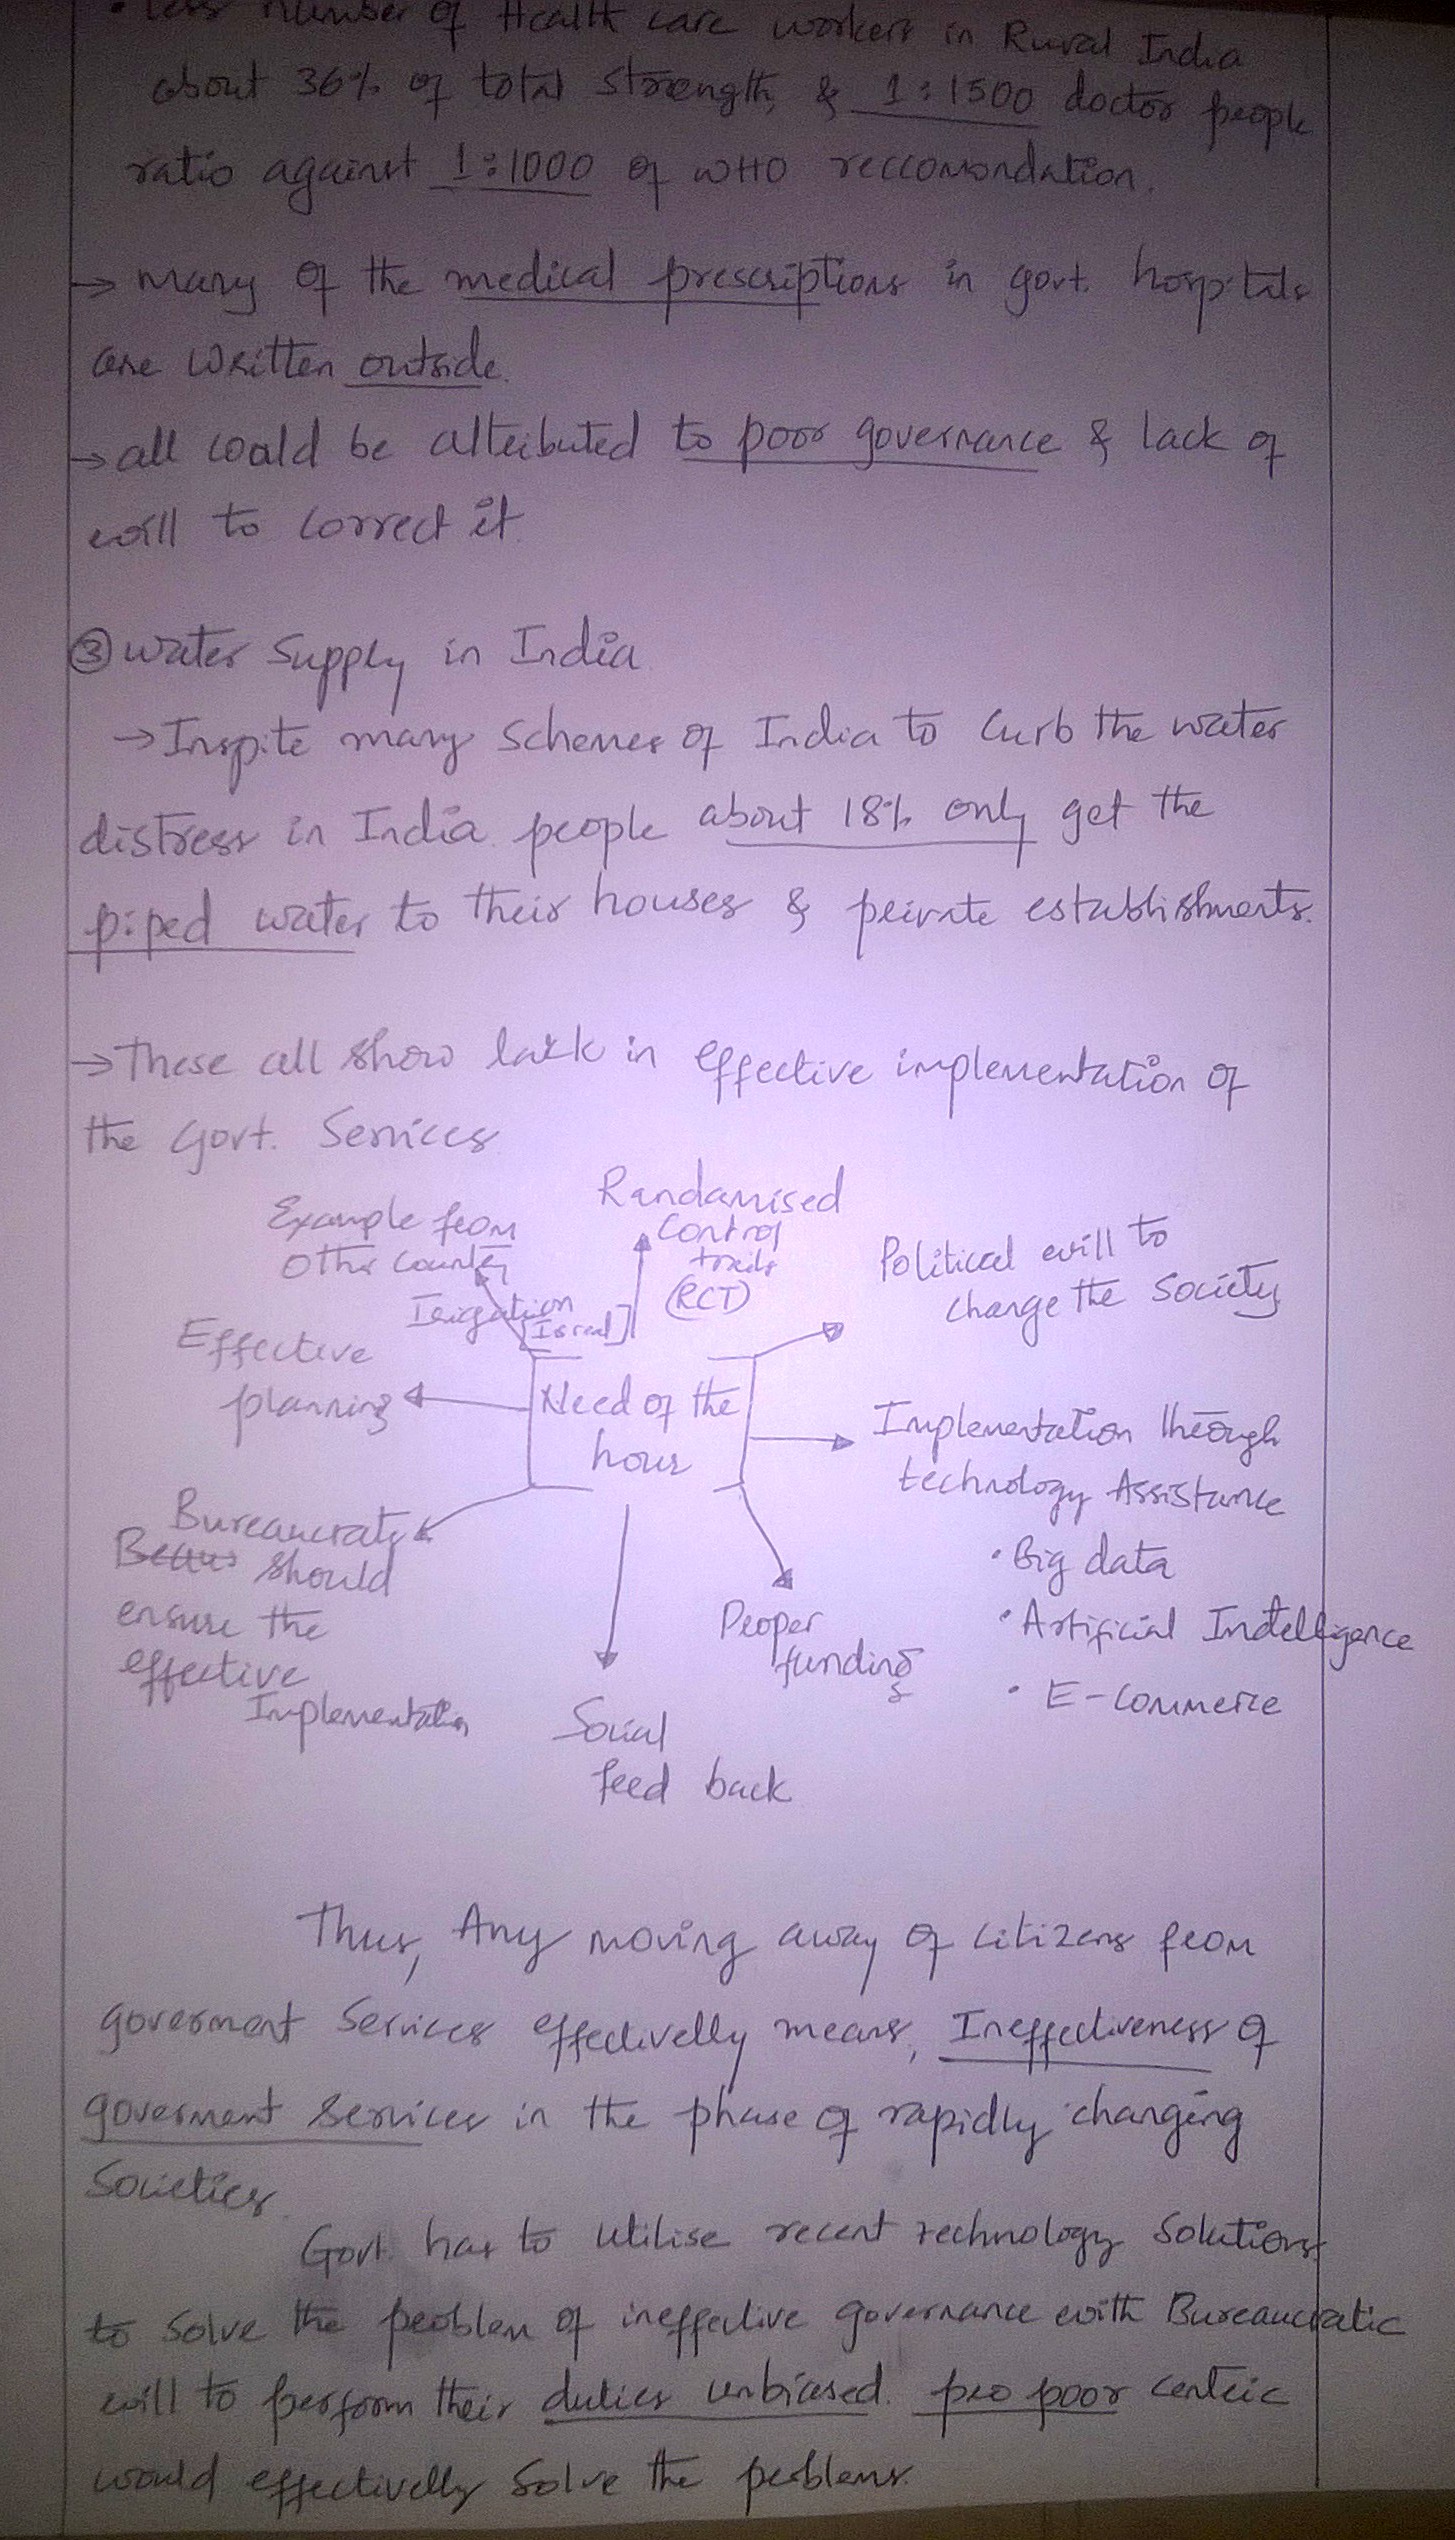 • Less number of Health care workers in Rural India
about 36% of total strength, & 1:1500 doctor people
ratio against 1:1000 of WHO reccomondation.
→ many of the medical prescriptions in govt. hospitals
are written outside.
→ all could be attributed to poor governance & lack of
will to correct it.
③ Water Supply in India
→ Inspite many schemes of India to curb the water
distress in India people about 18% only get the
piped water to their houses & private establishments.
→ These all show lack in effective implementation of
the Govt. Services
Example from
other country
Irrigation
[Isreal]
Randamised
control
trails
(RCT)
Political will to
change the Society
Effective
planning
Need of the
hour
Implementation through
technology Assistance
• Big data
• Artificial Indelligence
• E-Commerce
Bureaucrats
should
ensure the
effective
Implementation
Social
feed back
Proper
funding
Thus, Any moving away of citizens from
goverment Services effectivelly means, Ineffectiveness of
goverment services in the phase of rapidly changing
Societies.
Govt. has to utilise recent technology Solutions
to solve the problem of ineffective governance with Bureaucratic
will to perform their duties unbiased. pro poor centric
would effectivelly solve the problems.